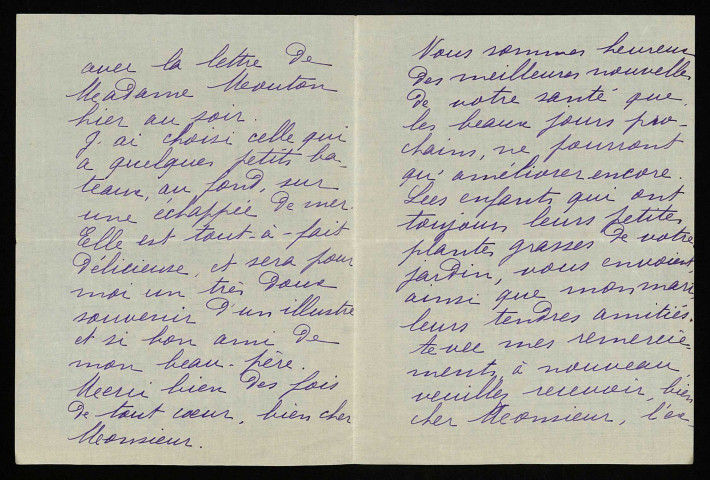 avec la lettre de
Madame Mouton
hier au soir.
J'ai choisi celle qui
a quelques petits ba-
teaux, au fond, sur
une échappée de mer.
Elle est tout-à-fait
délicieuse, et sera pour
moi un très doux
souvenir d'un illustre
et si bon ami de
mon beau-père.
Merci bien des fois
de tout cœur, bien cher
Monsieur.
Nous sommes heureux
des meilleures nouvelles
de votre santé que
les beaux jours pro-
chains, ne pourront
qu'améliorer encore.
Les enfants qui ont
toujours leurs petites
plantes grasses de votre
jardin, vous envoient,
ainsi que mon mari
leurs tendres amitiés.
Avec mes remercie-
ments à nouveau,
veuillez recevoir, bien
cher Monsieur, l'ex-